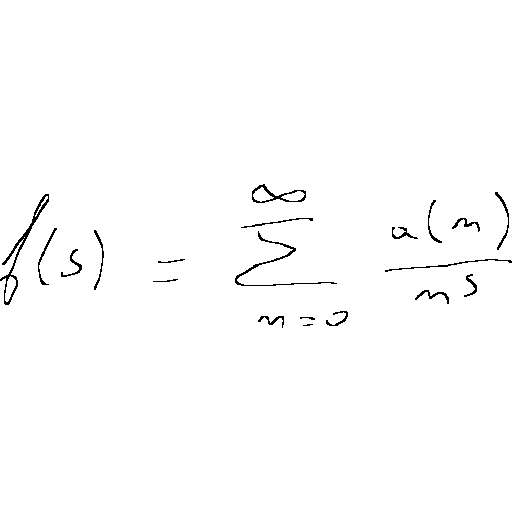 f(s) = \sum_{n=0}^{\infty} \frac{a(n)}{n^s}